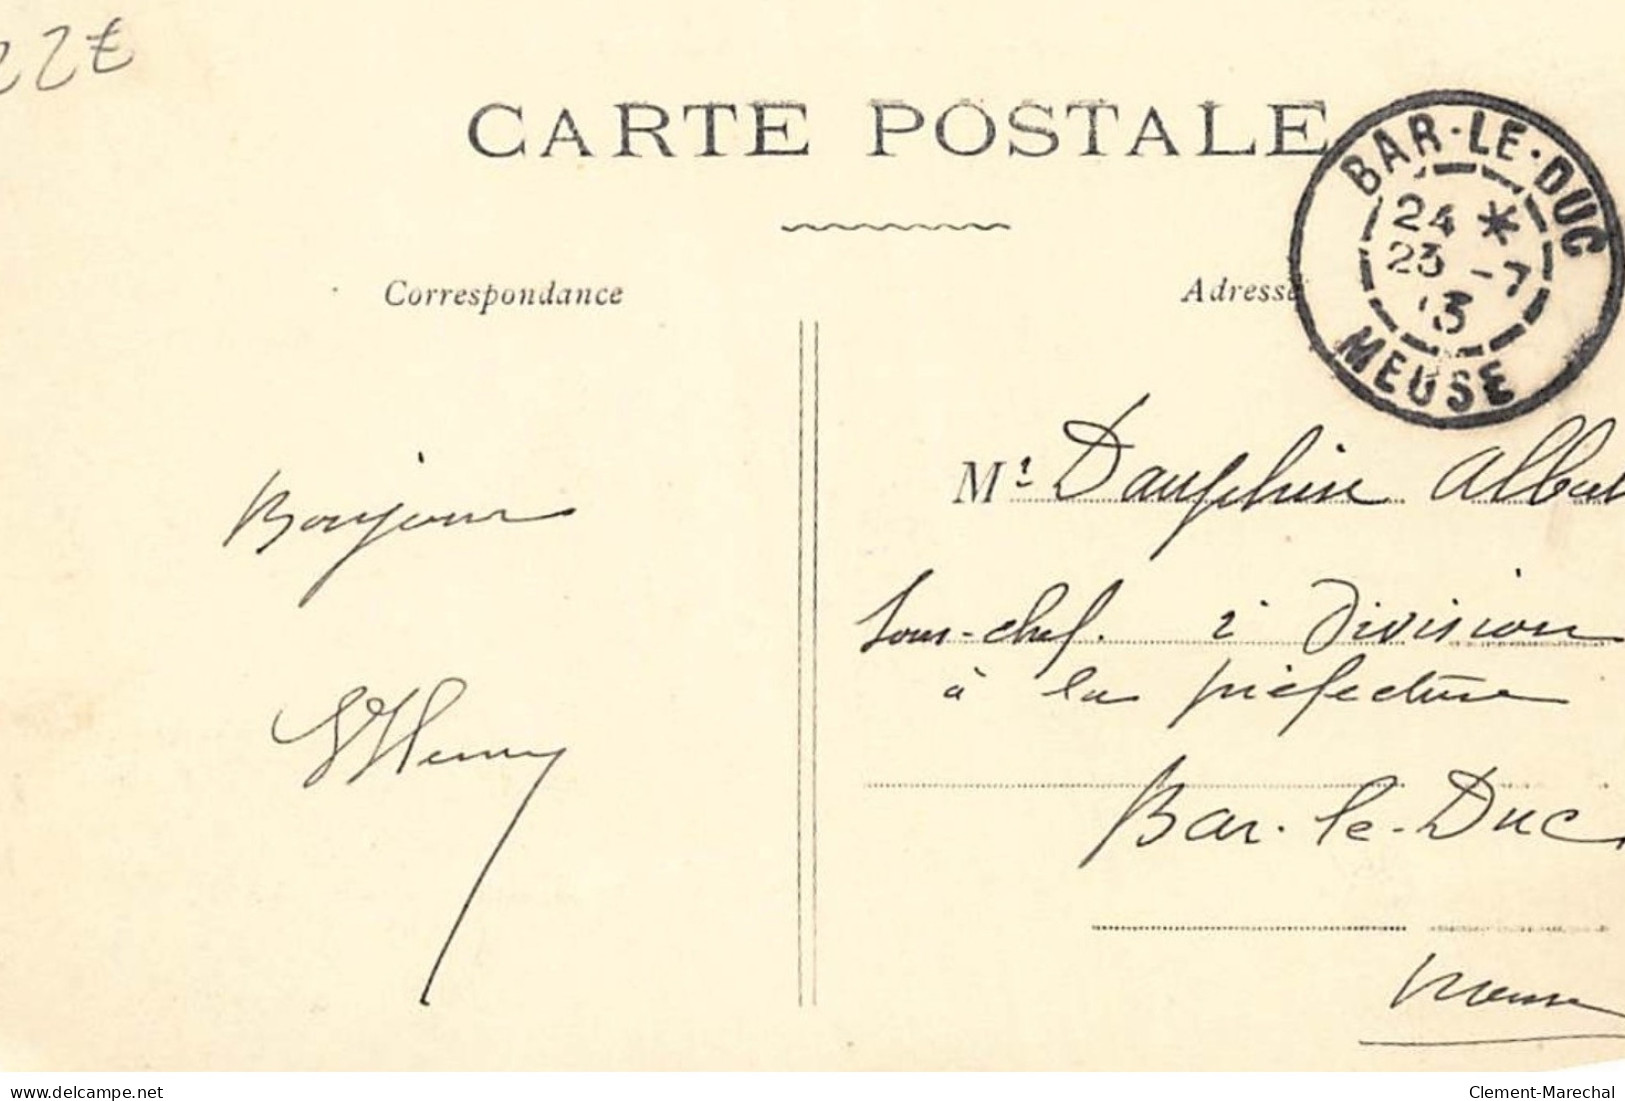 22€
CARTE POSTALE
BAR-LE-DUC
24 *
23 -7
13
MEUSE
Correspondance
Adresse
Mr Dauphin Albert
Sous-chef. 2e Division
à la préfecture
Bar-le-Duc
Meuse
Bonjour
Henry
www.delcampe.net
Clement-Marechal